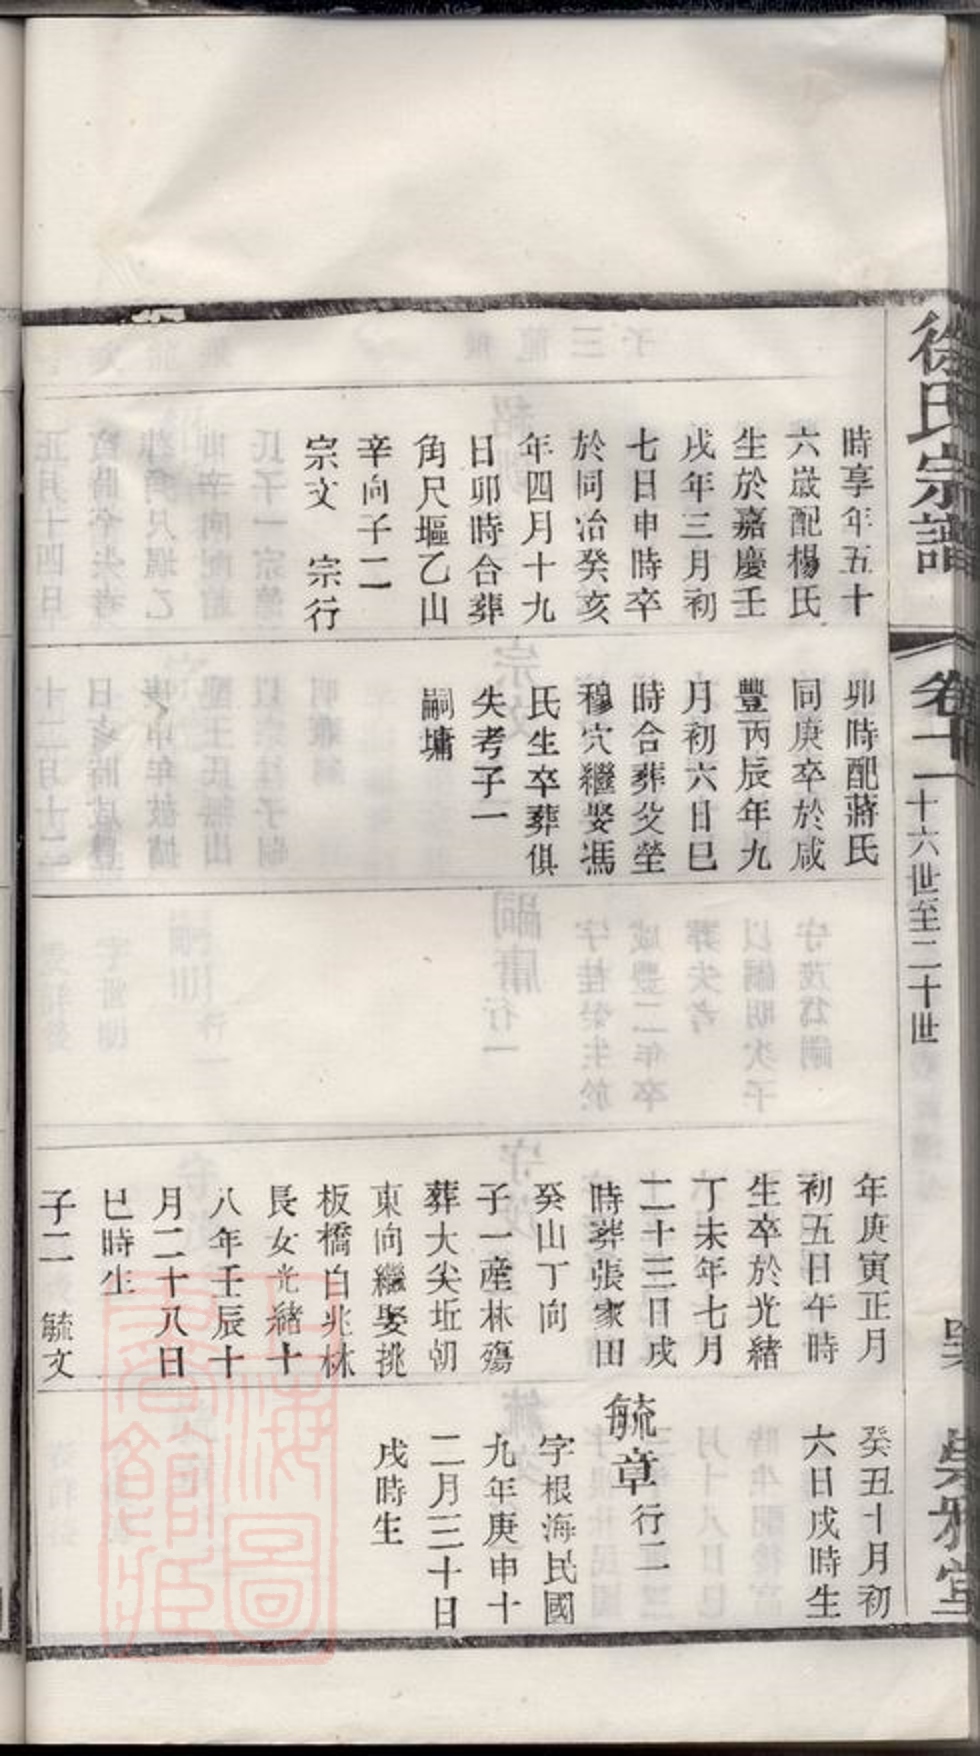 徐氏宗譜
卷十一
十六世至二十世
時享年五十
六歲配楊氏
生於嘉慶壬
戌年三月初
七日申時卒
於同治癸亥
年四月十九
日卯時合葬
角尺塸乙山
辛向子二
宗文 宗行
卯時配蔣氏
同庚卒於咸
豐丙辰年九
月初六日巳
時合葬父塋
穆穴繼娶馮
氏生卒葬俱
失考子一
嗣墉
年庚寅正月
初五日午時
生卒於光緒
丁未年七月
二十三日戌
時葬張家田
癸山丁向
子一產林殤
葬大尖坵朝
東向繼娶挑
板橋白兆林
長女光緒十
八年壬辰十
月二十八日
巳時生
子二 毓文
癸丑十月初
六日戌時生
毓章行二
字根海民國
九年庚申十
二月三十日
戌時生
上海圖書館藏